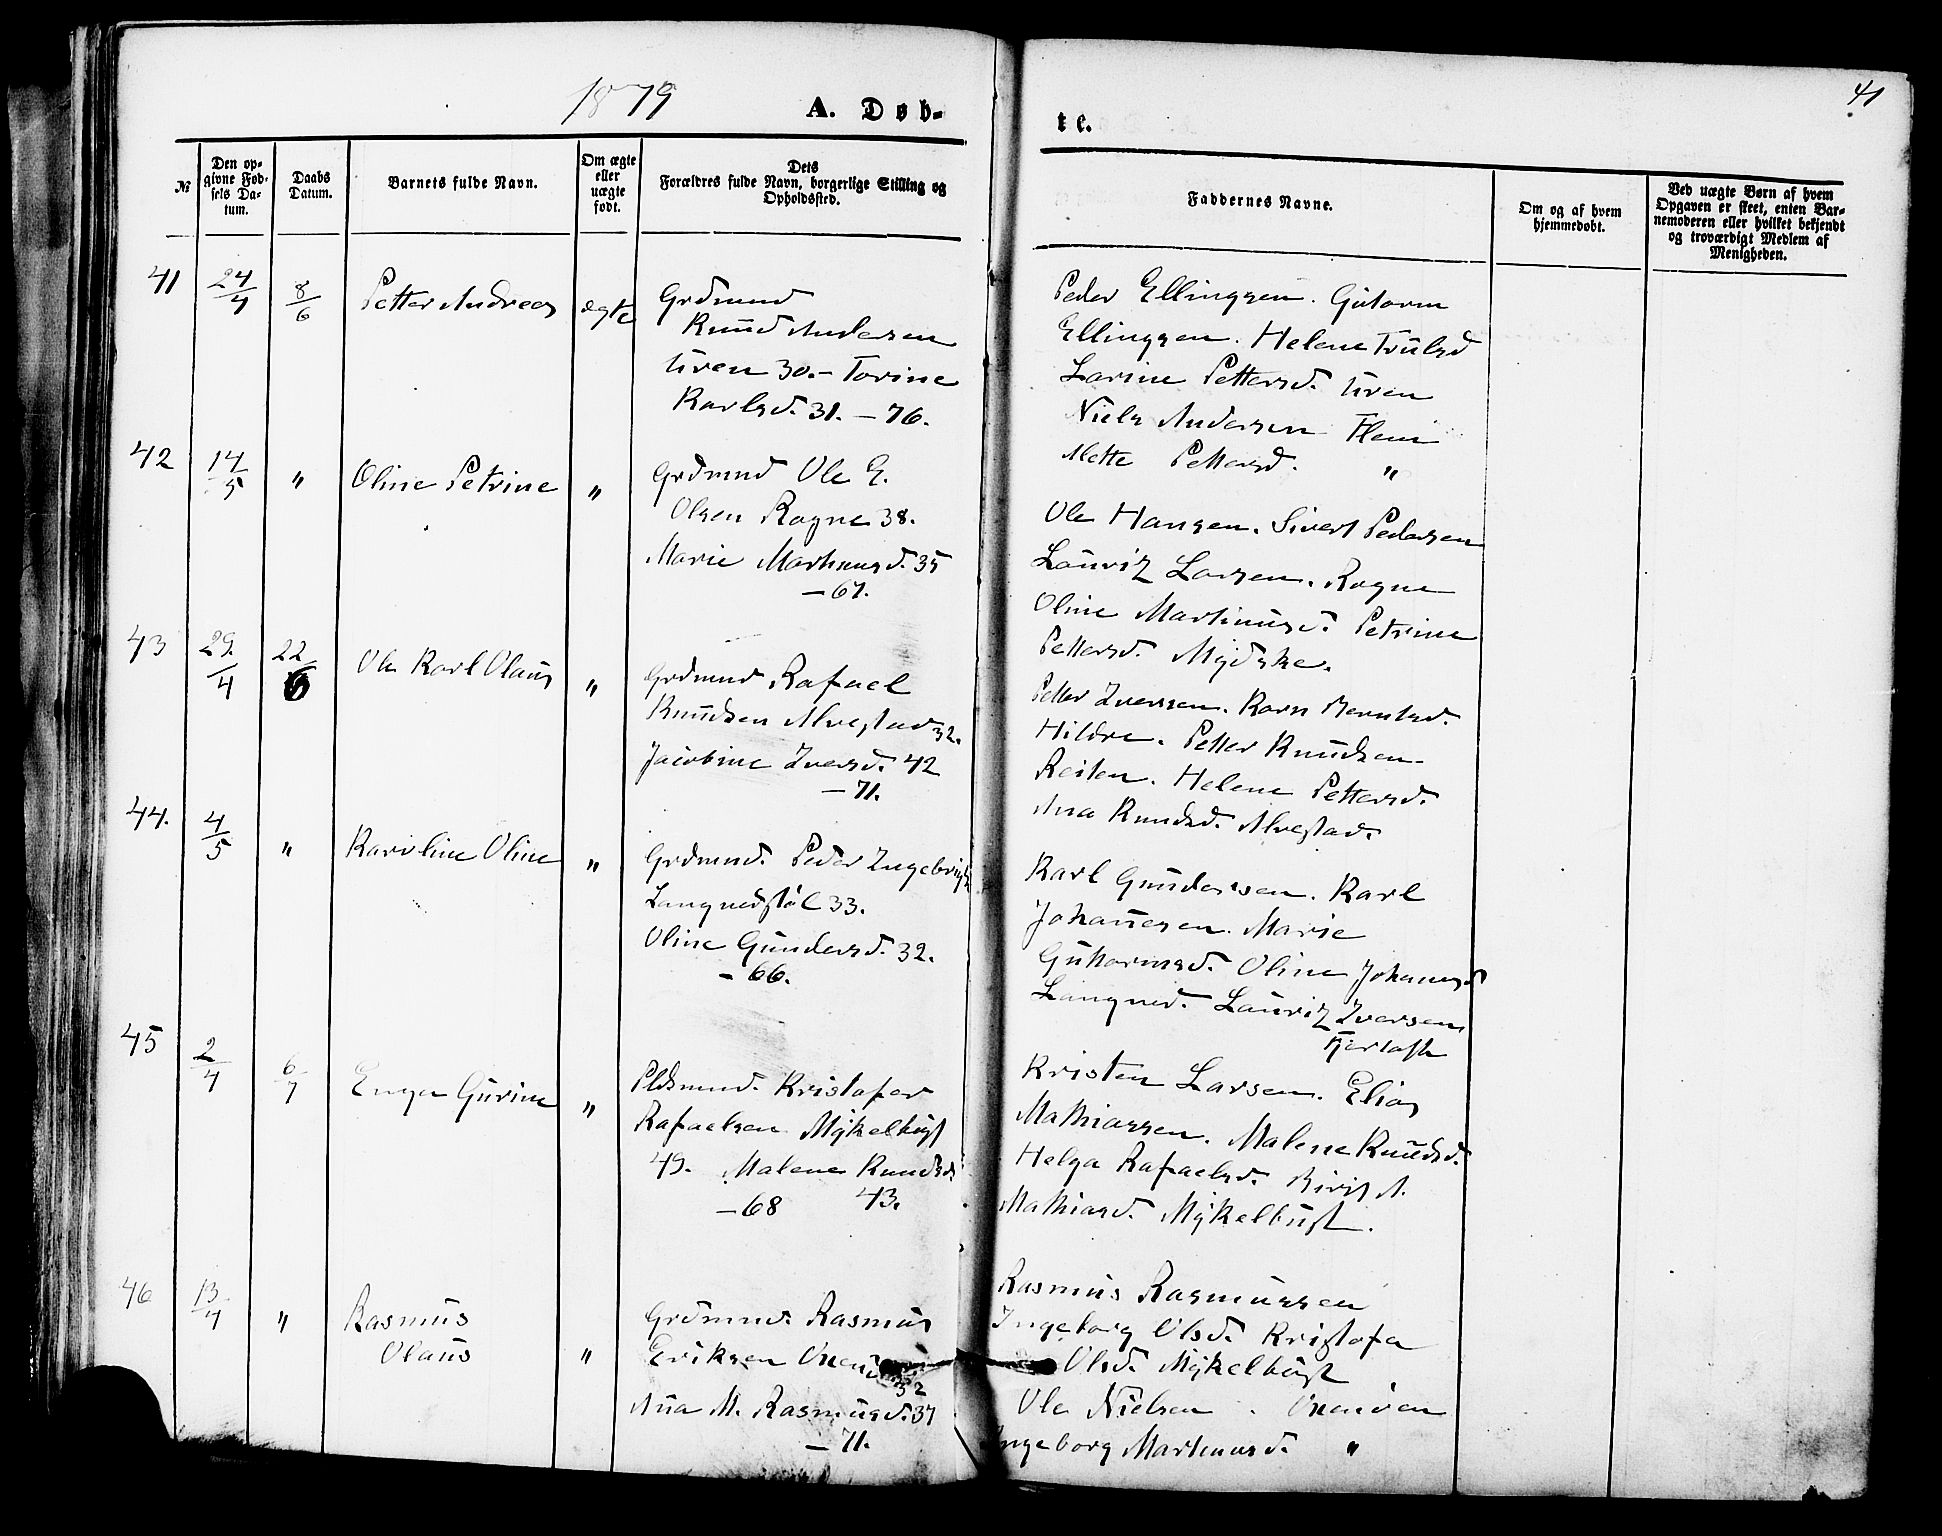 1879
A. Døb-
te.
41
№
Den op-
givne Fød-
sels Da-
tum.
Daabs
Datum.
Barnets fulde Navn.
Om ægte
eller
uægte
født.
Dets
Forældres fulde Navn, borgerlige Stilling og
Opholdssted.
Faddernes Navne.
Om og af hvem
hjemmedøbt.
Ved uægte Børn af hvem
Opgaven er skeet, enten Bar-
nemoderen eller hvilket bekjendt
og troværdigt Medlem af
Menigheden.
41 24/4 8/6 Petter Andreas ægte Grdmnd
Knud Andersen
Uren 30.- Torine
Karlsd. 31. - 76.
Peder Ellingsen. Gutorm
Ellingsen. Helene Trulsd
Larine Pettersd. Uren
Niels Andersen Flem
Mette Pettersd. "
42 14/5 " Oline Petrine " Grdmnd Ole E.
Olsen Rogne 38.
Marie Martinusd. 35
- 67.
Ole Hansen. Sivert Pedersen
Lauritz Larsen. Rogne
Oline Martinusd. Petrine
Pettersd. Mydske.
43 29/4 22/6 Ole Karl Olaus " Grdmnd Rafael
Knudsen Alvestad 32.
Jacobine Iversd. 42
- 71.
Petter Iversen. Karn Berntsd.
Hildre. Petter Knudsen
Reiten. Helene Pettersd.
Ana Knudsd. Alvestad.
44. 4/5 " Karoline Oline " Grdmnd. Peder Ingebrigts
Langnedstøl 33.
Oline Gundersd. 32.
- 66.
Karl Gundersen. Karl
Johannesen. Marie
Guttormsd. Oline Johansd
Langned. Lauritz Iversen
Fjærtoft
45 2/4 6/7 Enga Gurine " Pldsmnd. Kristofer
Rafaelsen Mykelbust
49. Malene Knudsd
- 68 43.
Kristen Larsen. Elias
Mathiassen. Malene Knudsd.
Helga Rafaelsd. Birgit A.
Mathiasd. Mykelbust.
46 13/4 " Rasmus
Olaus " Grdmnd. Rasmus
Eriksen
32
Ana M. Rasmusd. 37
- 71.
Rasmus Rasmussen
Ingeborg Olsd. Kristofa
Olsd. Mykelbust
Ole Nielsen .
Ingeborg Martinusd. "